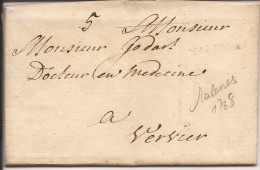 5 A Monsieur
Monsieur Godart
Docteur en Medecine
a
Vervier
Malines
1768